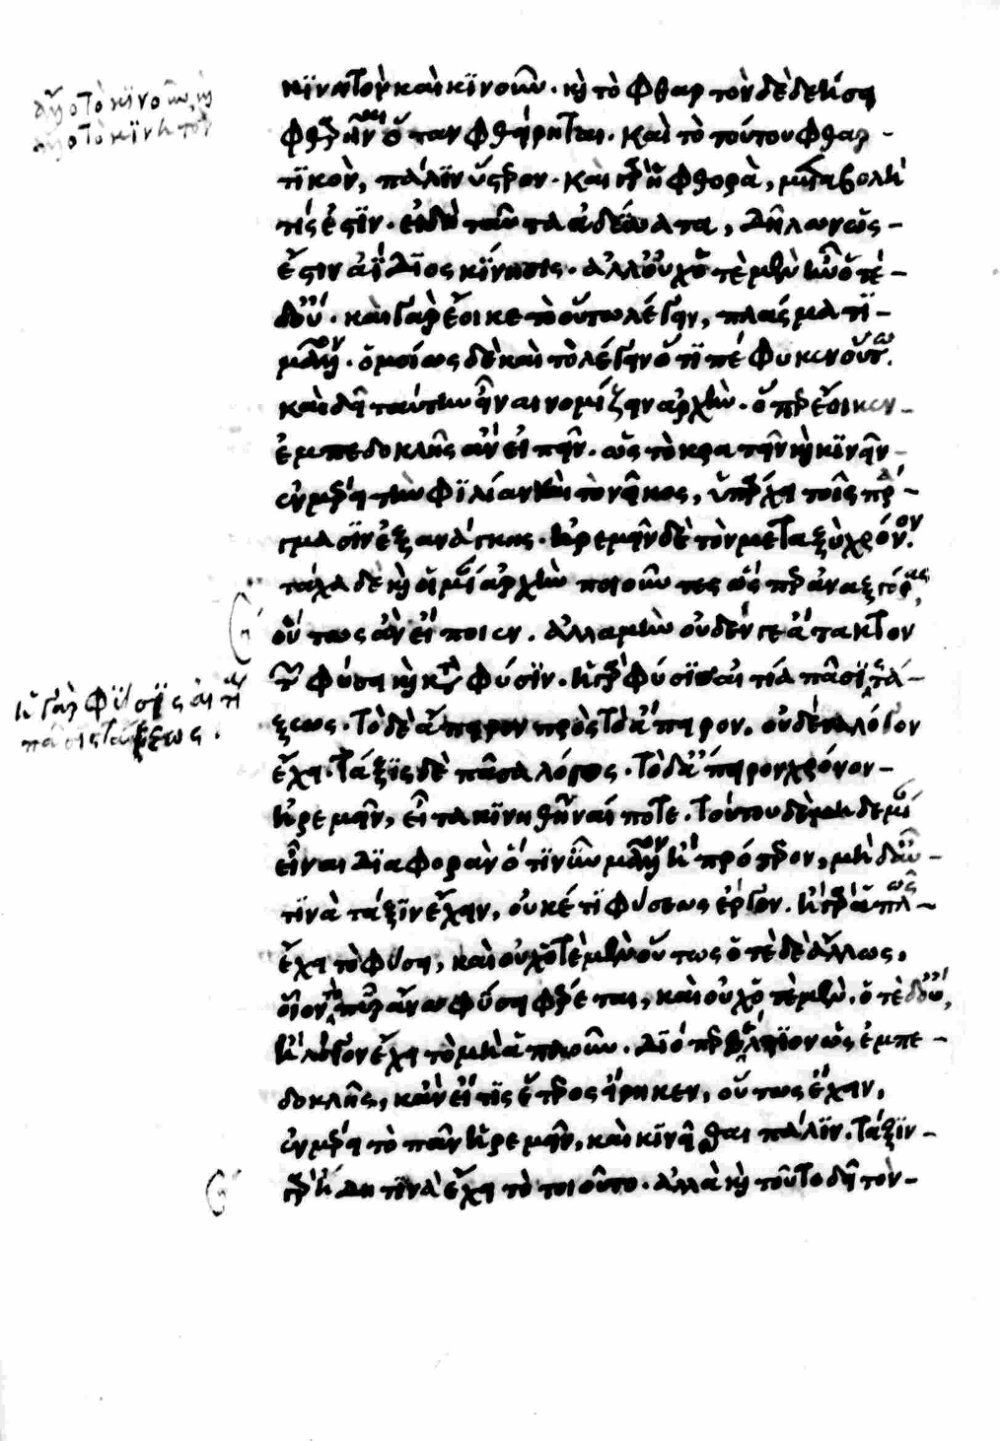 κϊνητὸν καὶ κϊνοῦν. κὴ τὸ φθαρτὸν δὲ δεήσει
φθείρειν ὅταν φθείρηται. καὶ τὸ τούτου φθαρ-
τϊκὸν, πάλϊν ὕστερον. καὶ γὰρ ἡ φθορὰ, μεταβολή
τίς ἐστϊν. εἰ δὴ ταῦτα ἀδύνατα, δῆλον ὡς-
ἔστιν ἀΐδϊος κΐνησις. ἀλλ' οὐχ ὁτὲ μὲν ἦν ὁτὲ-
δ' οὔ. καὶ γὰρ ἔοικε τὸ οὕτω λέγειν, πλάσματϊ-
μᾶλλον. ὁμοίως δὲ καὶ τὸ λέγειν ὅτϊ πέφυκεν οὕτω.
καὶ δεῖ ταύτην εἶναι νομίζειν ἀρχήν. ὅπερ ἔοικεν-
ἐμπεδοκλῆς ἂν εἰπεῖν. ὡς τὸ κρατεῖν κὴ κϊνεῖν-
ἐν μέρει τὴν φϊλίαν καὶ τὸ νεῖκος, ὑπάρχει τοῖς πρά-
γμασϊν ἐξ ἀνάγκης. ἠρεμεῖν δὲ τὸν μεταξὺ χρόνον.
τάχα δὲ κὴ οἱ μίαν ἀρχὴν ποιοῦντες ὥσπερ ἀναξαγόρας,
οὕτως ἂν εἴποιεν. ἀλλὰ μὴν οὐδέν γε ἄτακτον
τῶν φύσει κὴ κατὰ φύσϊν. ἡ γὰρ φύσϊς αἰτία πᾶσϊ τά-
ξεως. τὸ δὲ ἄπειρον πρὸς τὸ ἄπειρον, οὐδένα λόγον
ἔχει. τάξϊς δὲ πᾶσα λόγος. τὸ δ' ἄπειρον χρόνον-
ἠρεμεῖν, εἶτα κϊνηθῆναί ποτε. τούτου δὲ μηδεμίαν
εἶναι δϊαφορὰν ὅτϊ νῦν μᾶλλον ἢ πρότερον, μὴ δ' αὖ-
τϊνὰ τάξϊν ἔχειν, οὐκέτϊ φύσεως ἔργον. ἢ γὰρ ἁπλῶς-
ἔχει τὸ φύσει, καὶ οὐχ ὁτὲ μὲν οὕτως ὁτὲ δὲ ἄλλως,
οἷον τὸ πῦρ ἄνω φύσει φέρεται, καὶ οὐχ ὁτὲ μὲν. ὁτὲ δ' οὔ,
ἢ λόγον ἔχει τὸ μὴ ἁπλοῦν. δϊόπερ βέλτϊον ὡς ἐμπε-
δοκλῆς, κἂν εἴ τϊς ἕτερος εἴρηκεν, οὕτως ἔχειν,
ἐν μέρει τὸ πᾶν ἠρεμεῖν, καὶ κϊνεῖσθαι πάλϊν. τάξϊν-
γὰρ ἤδη τϊνὰ ἔχει τὸ τοιοῦτο. ἀλλὰ κὴ τοῦτο δεῖ τὸν-
ἡ γὰρ φΰσϊς αἰτία
πᾶσι τάξεως.